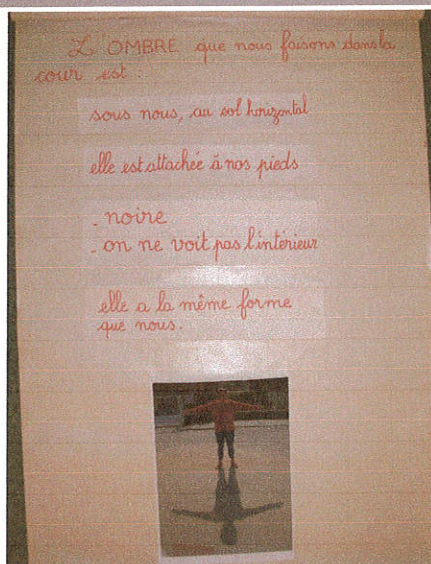 L'OMBRE que nous faisons dans la
cour est :
sous nous, au sol horizontal
elle est attachée à nos pieds
- noire
- on ne voit pas l'intérieur
elle a la même forme
que nous.